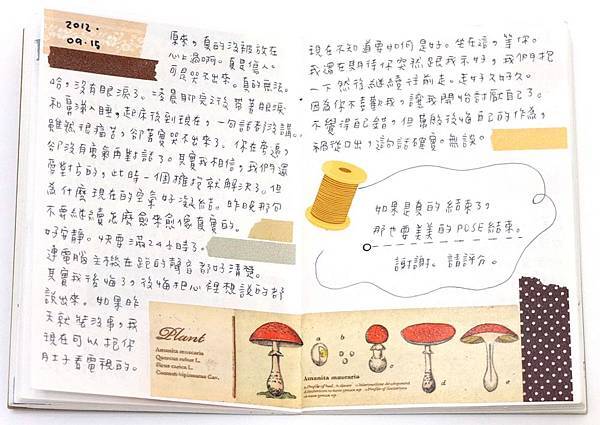 2012.
09.15
原來，真的沒被放在
心上過啊。真是傷人。
可是哭不出來。真的無法。
哈，沒有眼淚了。凌晨聊完後帶著眼淚
和憂鬱入睡，起床後到現在，一句話都沒講。
雖然很痛苦，卻苦癟哭不出來了。你在旁邊，
卻沒有勇氣再對話了。其實我相信，我們還
麼對的，此時一個擁抱就解決了。但
為什麼現在的空氣好凝結。昨晚那句
不要繼續怎麼愈來愈像真實的。
好安靜。快要滿24小時了。
連電腦主機在跑的聲音都好清楚。
其實我後悔了，後悔把心裡想說的都
說出來。如果昨
天就裝沒事，我
現在可以抱你
肚子看電視的。
現在不知道要如何是好。坐在這，等你。
我還在期待你突然跟我示好，我們擁抱
一下然後繼續往前走。走好久好久。
因為你不喜歡我，讓我開始討厭自己了。
不覺得自己錯，但萬般後悔自己的作為，
禍從口出，這句話確實。無誤。
如果是真的結束了，
那也要美美的POSE結束。
謝謝。請評分。
Plant
Amanita muscaria
Quercus robur L.
Ficus carica L.
a
b
c
d
e
Amanita muscaria